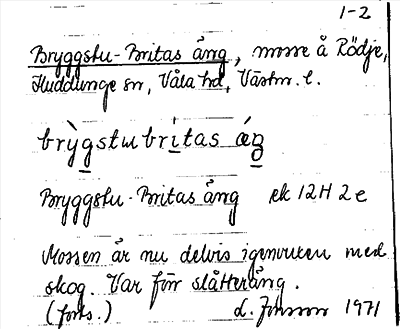 1-2
Bryggstu-Britas äng, mosse å Rödje,
Huddunge sn, Våla hd, Västm. l.
brỳgstubrítas ǽŋ
Bryggstu-Britas äng ek 12H 2e
Mossen är nu delvis igenvuxen med
skog. Var förr slåtteräng.
(forts.) d. Jonsson 1971